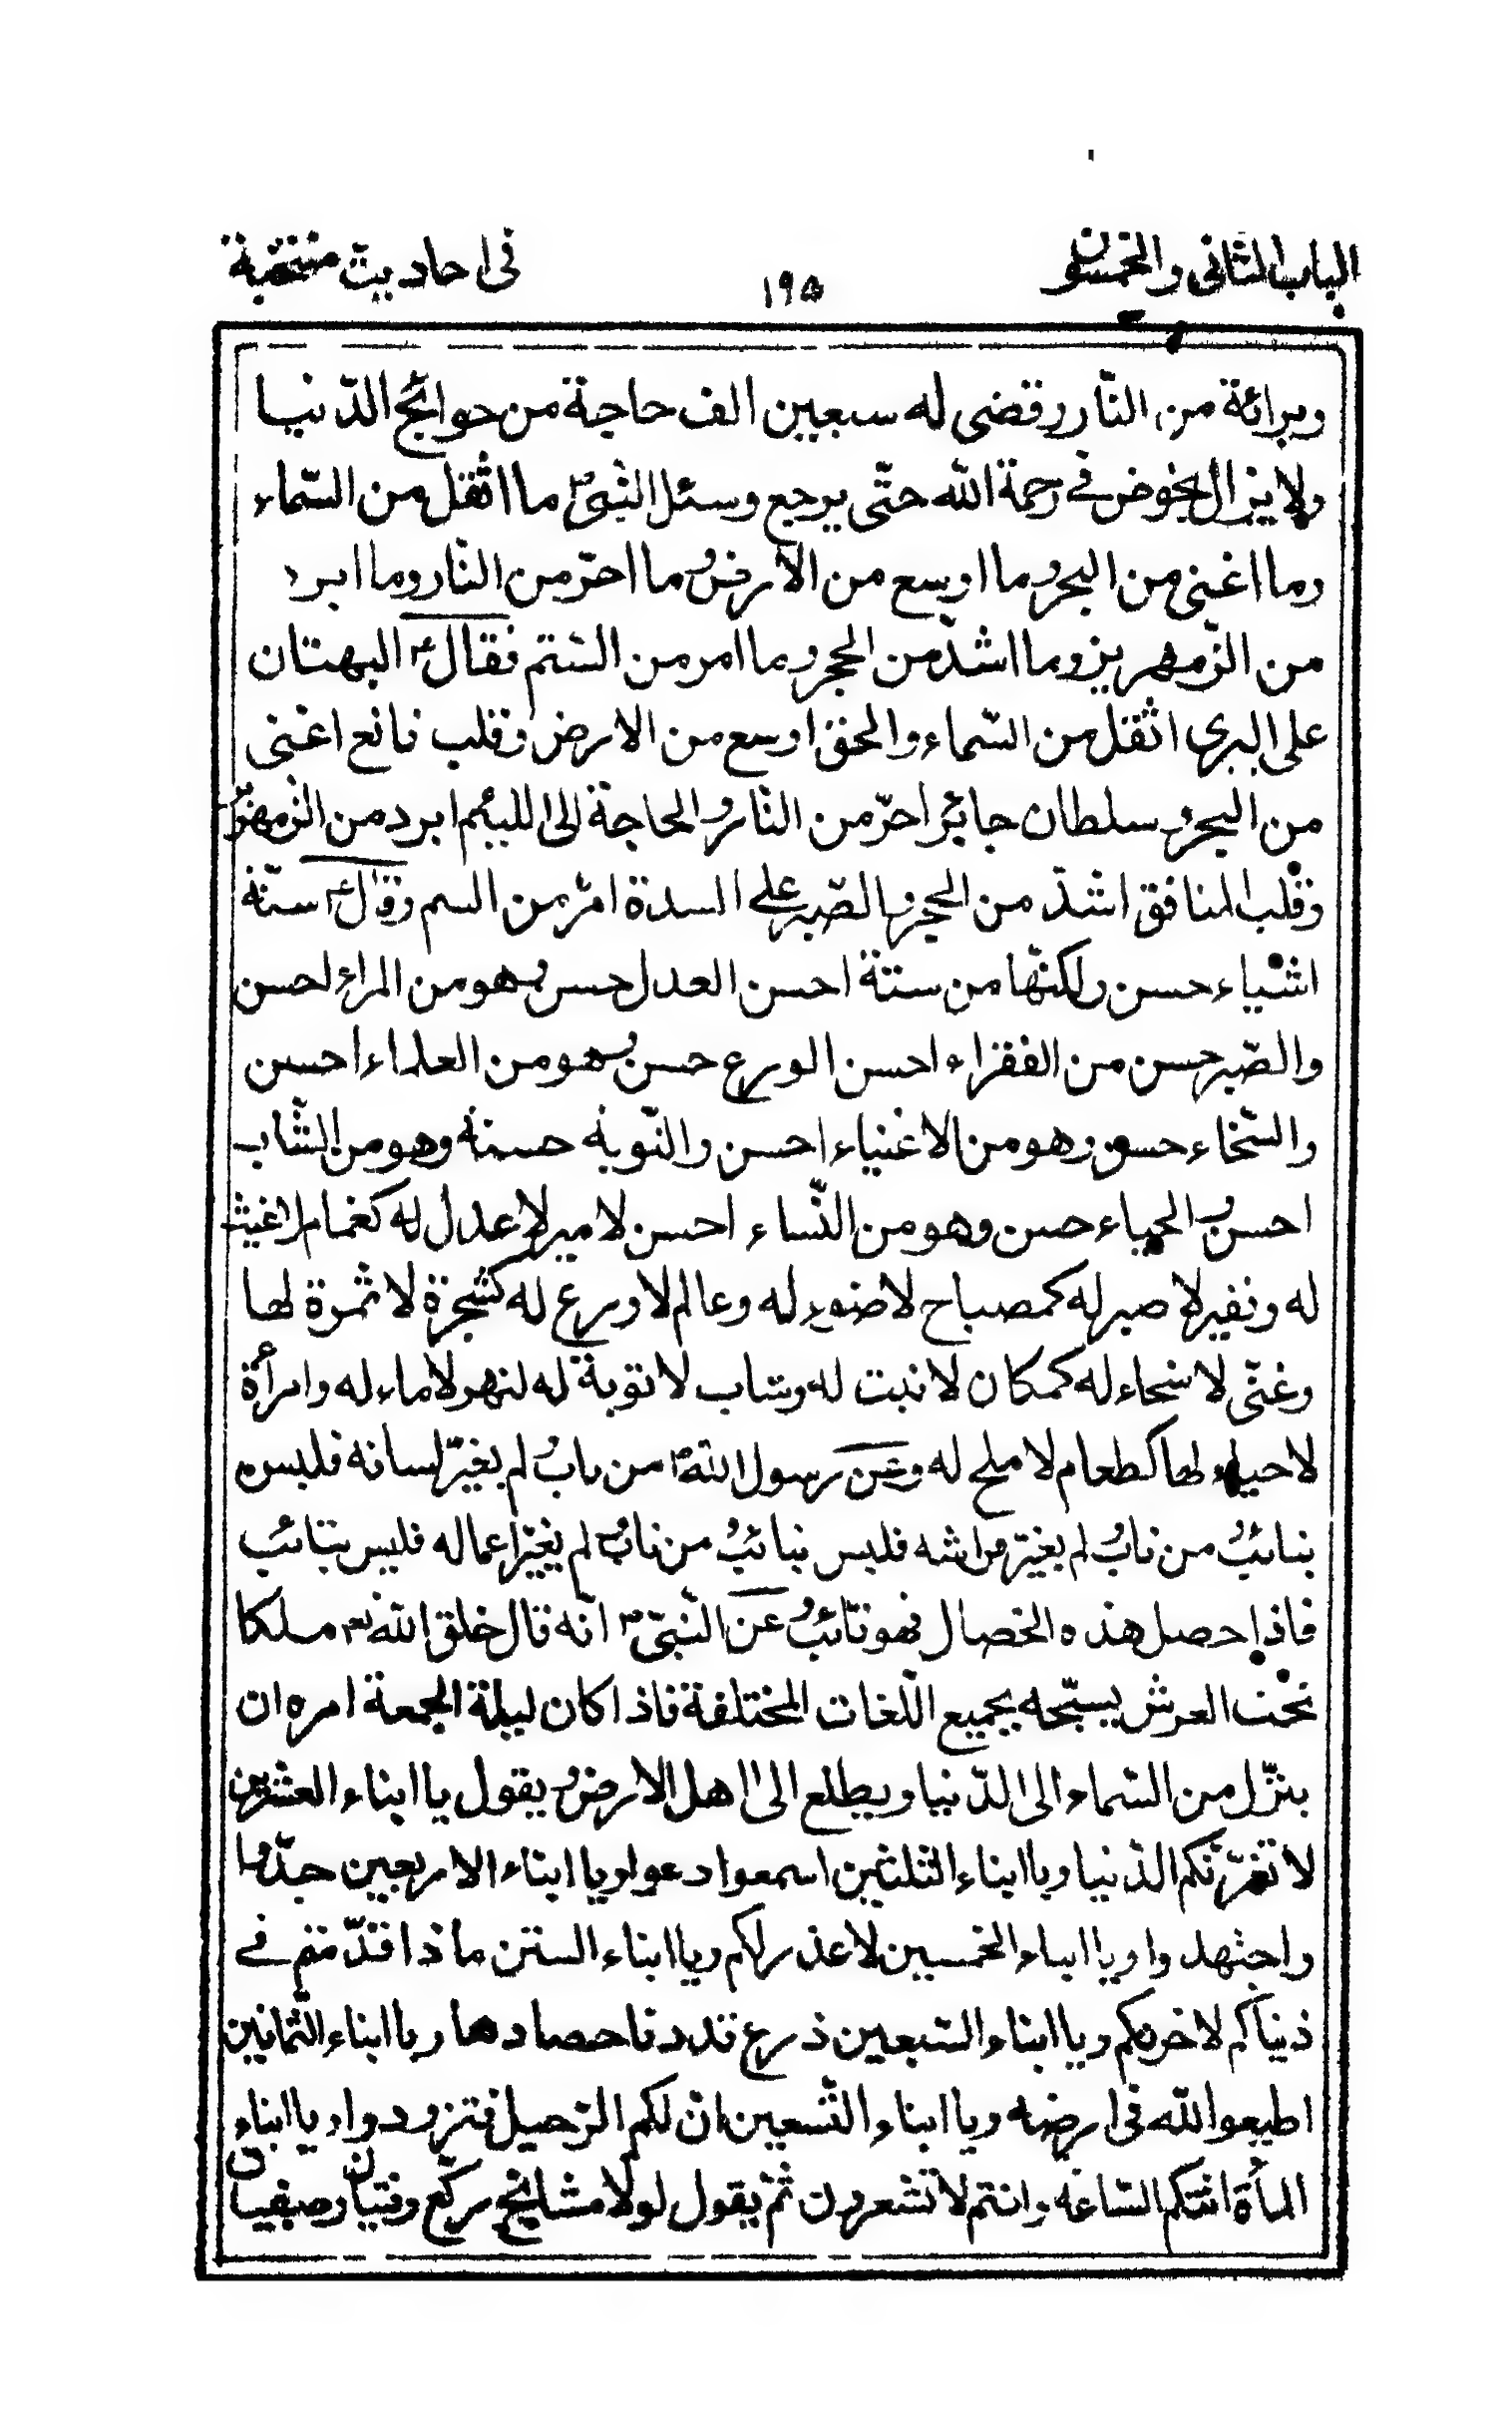 الباب الثانی والخمسون ١٩٥ فی احادیث منتخبة
وبرائة من النّار وقضی له سبعین الف حاجة من حوائج الدّنیا
ولا یزال یخوض فی رحمة الله حتّی یرجع وسئل النّبیّ ص ما اثقل من السّماء
وما اغنی من البحر وما اوسع من الارض وما احرّ من النّار وما ابرد
من الزّمهریر وما اشدّ من الحجر وما امر من السّم فقال ع البهتان
علی البری اثقل من السّماء والحق اوسع من الارض وقلب قانع اغنی
من البحر وسلطان جائر احرّ من النّار والحاجة الی اللئیم ابرد من الزمهریر
وقلب المنافق اشدّ من الحجر والصّبر علی السدة امرّ من السم وقال ع ستّة
اشیاء حسن ولکنّها من ستة احسن العدل حسن وهو من الامراء احسن
والصّبر حسن من الفقراء احسن الورع حسن وهو من العلماء احسن
والسّخاء حسن وهو من الاغنیاء احسن والتّوبة حسنة وهو من الشّاب
احسن والحیاء حسن وهو من النّساء احسن لامیر لا عدل له کغمام لا غیث
له وفقیر لا صبر له کمصباح لا ضوء له وعالم لا ورع له کشجرة لا ثمرة لها
وغنّی لا سخاء له کمکان لا نبت له وشاب لا توبة له لنهر لا ماء له وامرأة
لا حیاء لها کطعام لا ملح له وعن رسول الله ص من تاب ولم یغیّر لسانه فلیس
بتائب ومن تاب ولم یغیّر فراشه فلیس بتائب ومن تاب ولم یغیّر اعماله فلیس بتائب
فاذا حصل هذه الخصال فهو تائب وعن النّبیّ ص انّه قال خلق الله تع ملکا
تحت العرش یسبّحه بجمیع اللّغات المختلفة فاذا کان لیلة الجمعة امره ان
ینزّل من السّماء الی الدّنیا ویطلع الی اهل الارض ویقول یا ابناء العشرین
لا تغرّنّکم الدّنیا ویا ابناء الثلثین اسمعوا وعوا ویا ابناء الاربعین جدّوا
واجتهدوا ویا ابناء الخمسین لا عذر لکم ویا ابناء الستین ماذا قدّمتم فی
دنیاکم لاخرتکم ویا ابناء السّبعین زرع قد دنا حصادها ویا ابناء الثّمانین
اطیعوا الله فی ارضه ویا ابناء التّسعین ان لکم الرّحیل فتزودوا ویا ابناء
المأة اتتکم السّاعة وانتم لا تشعرون ثمّ یقول لولا مشایخ رکّع وفتیان وصبیان